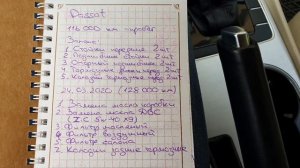 Passat
116 000 км пробег
Замена:
1. Стойки передние 2 шт.
2. Подшипник стойки 2 шт
3. Опорный подшипник 2 шт
4. Тормозные диски перед 2 шт
5. Колодки тормозные перед
24.03.2020 (128 000 км)
1. Замена масло коробки
2. Замена масла ДВС
(ZIC 5w-40 XQ)
3. Фильтр масляный
4. Фильтр воздушный
5. Фильтр салона
Колодки задние тормозные